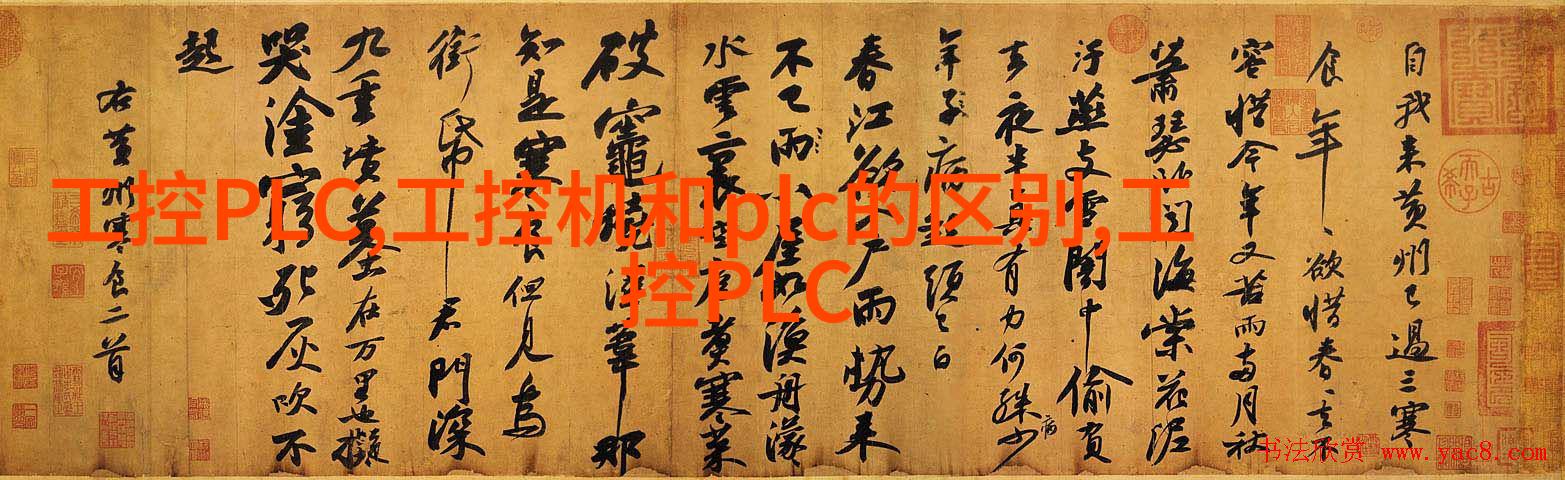 工控PLC,工控机和plc的区别,工
控PLC
自我来黄州已過三寒
食年、欲惜春、去不
容惜今年又苦雨兩月秋
蕭瑟卧聞海棠花泥
汙燕支雪闇中偷負
去夜半真有力何殊少
病
年子病起頭已白
春江欲入户雨勢来
不已雨小屋如漁舟濛
水雲裏空庖煮寒菜
破竈燒濕葦那
知是寒食但見烏
銜帋君門深
九重墳墓在万里也擬
哭塗窮死灰吹不
起
右黄州寒食二首
书法欣赏 www.yac8.com